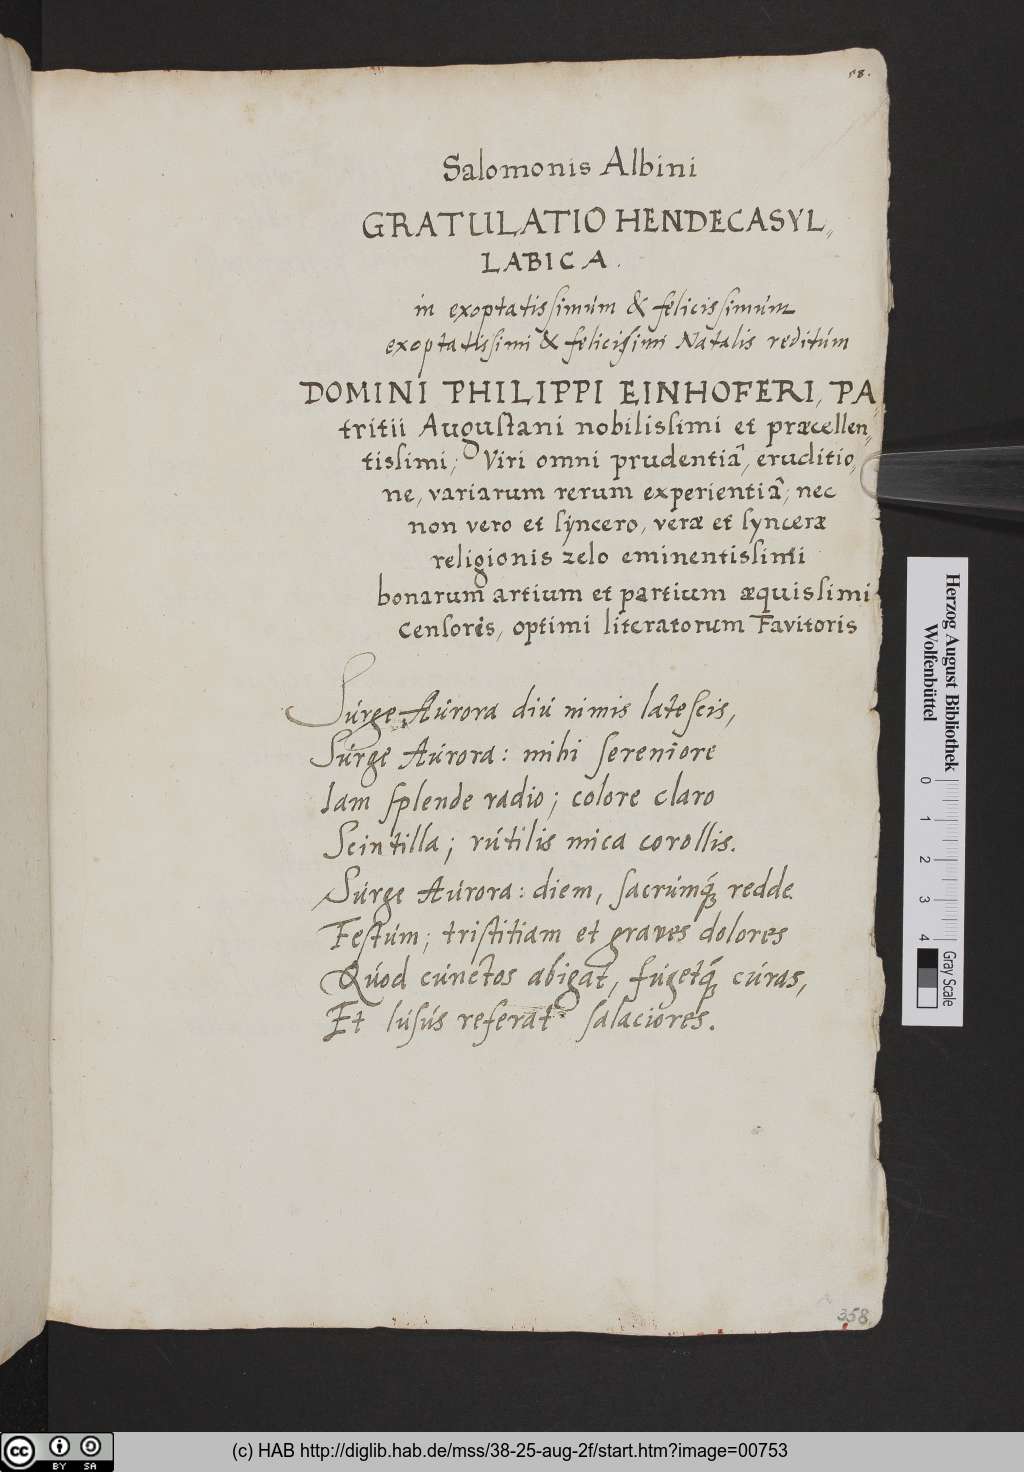 58.
Salomonis Albini
GRATULATIO HENDECASYL„
LABICA.
in exoptatissimúm & felicissimúm
exoptatissimi & felicissimi Natalis reditúm
DOMINI PHILIPPI EINHOFERI, PA„
tritii Augustani nobilissimi et præcellen„
tissimi; Viri omni prudentiâ, eruditio„
ne, variarum rerum experientiâ, nec
non vero et syncero, veræ et synceræ
religionis zelo eminentissimi
bonarum artium et partium æquissimi
Censoris, optimi literatorum Favitoris
Súrge Aúrora diú nimis latescis,
Súrge Aúrora: mihi sereniore
Iam splende radio; colore claro
Scintilla; rútilis mica corollis.
Súrge Aúrora: diem, sacrúmq́ꝫ redde
Festúm; tristitiam et graves dolores
Qúod cúnctos abigat, fúgetq́ꝫ cúras,
Et lúsús referat salaciores.
358
Herzog August Bibliothek
Wolfenbüttel
0 1 2 3 4
Gray Scale
cc BY SA
(c) HAB http://diglib.hab.de/mss/38-25-aug-2f/start.htm?image=00753